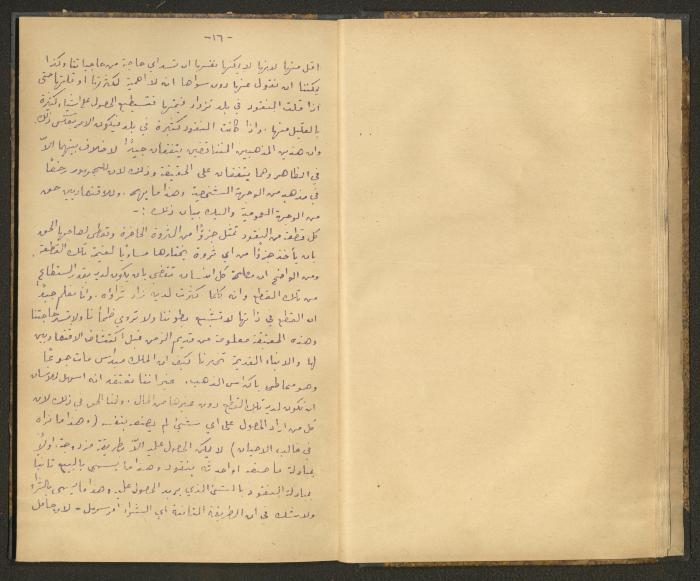 -١٦-
اقل منها لانها لا يمكنها بنفسها ان تسد اي حاجة من حاجياتنا وكذا
يمكننا ان نقول عنها دون سواها انه لا اهمية لكثرتها أو قلتها حتى
اذا قلت النقود في بلد تزداد قيمتها فنستطيع الحصول على اشياء كثيرة
بالقليل منها. واذا كانت النقود كثيرة في بلد فيكون الامر بعكس ذلك
وان هذين المذهبين المتناقضين يتفقان جيدًا لا خلاف بينهما الاّ
في الظاهر وهما يتفقان على الحقيقة وذلك لان للجمهور
في مذهبه من الوجهة الشخصية وهذا ما يهمه. وللاقتصاديين حق
من الوجهة العمومية واليك بيان ذلك :-
كل قطعة من النقود تمثل جزءًا من الثروة الحاضرة وتعطي لصاحبها الحق
بان يأخذ جزءًا من اي ثروة يختارها مساويًا لقيمة تلك القطعة.
ومن الواضح ان مصلحة كل انسان تقضي بان يكون لديه بقدر المستطاع
من تلك القطع وانه كلما كثرت لديه زاد ثراؤه. وانا نعلم جيدًا
ان القطع في ذاتها لا تشبع بطوننا ولا تروي ظمأنا ولا تسد حاجتنا
وهذه الحقيقة معلومة من قديم الزمن قبل اكتشاف الاقتصاديين
لها والانباء القديمة تخبرنا كيف ان الملك ميداس مات جوعًا
وهو محاط باكداس الذهب. غير اننا نعتقد انه اسهل للانسان
ان تكون لديه تلك القطع دون غيرها من المال. ولنا الحق في ذلك لان
كل من اراد الحصول على اي شيء لم يصنعه بنفسه (وهذا ما نراه
في غالب الاحيان) لا يمكن الحصول عليه الاّ بطريقة مزدوجة. اولاً
مبادلة ما صنعه او احدثه بنقود وهذا ما يسمى بالبيع ثانيًا
مبادلة النقود بالشيء الذي يريد الحصول عليه وهذا ما يسمى بالشراء
ولا شك في ان الطريقة الثانية اي الشراء امر سهل - لان حامل